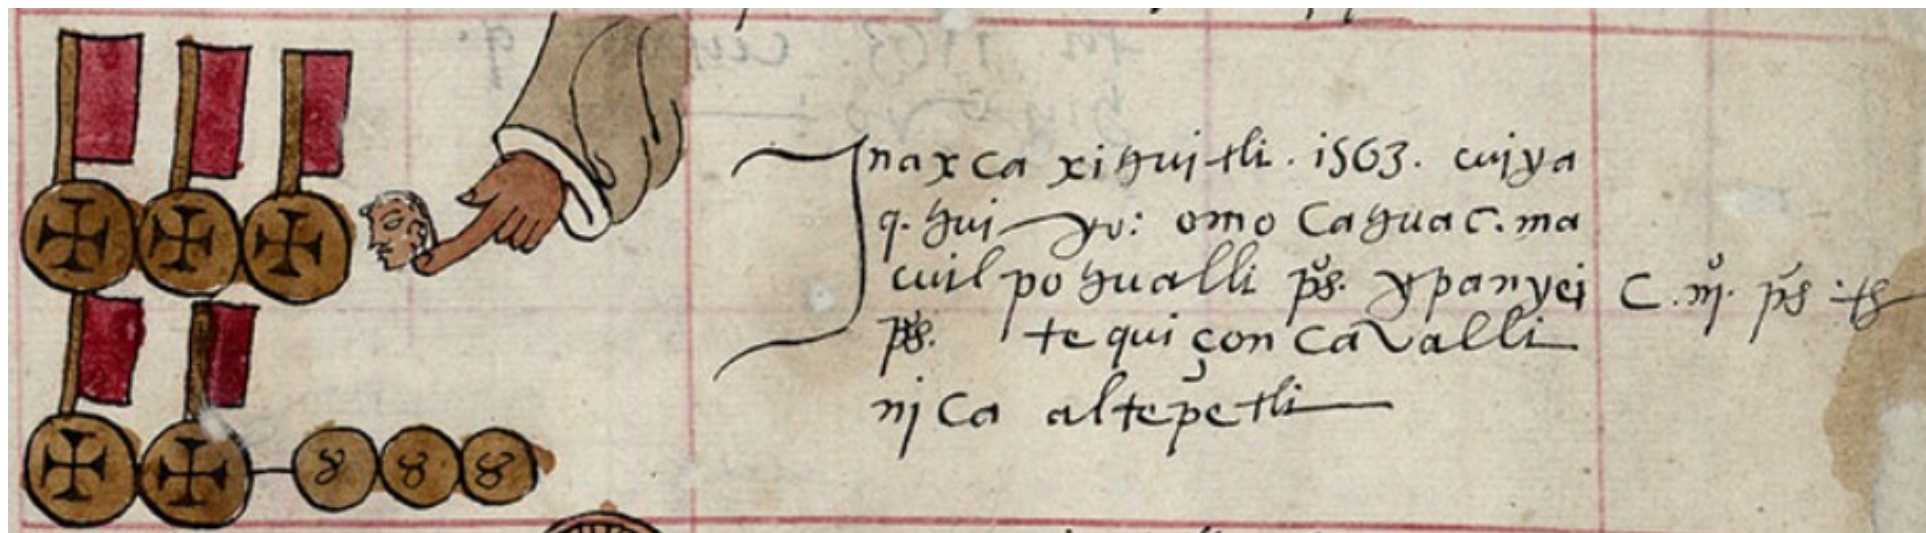 naxca xihuitli. 1563. cuiya
q. hui yo: omo cahuac. ma
cuilpohualli ps. ypanyei
C. iij. ps
ps. tequi con cavalli
nica altepetli